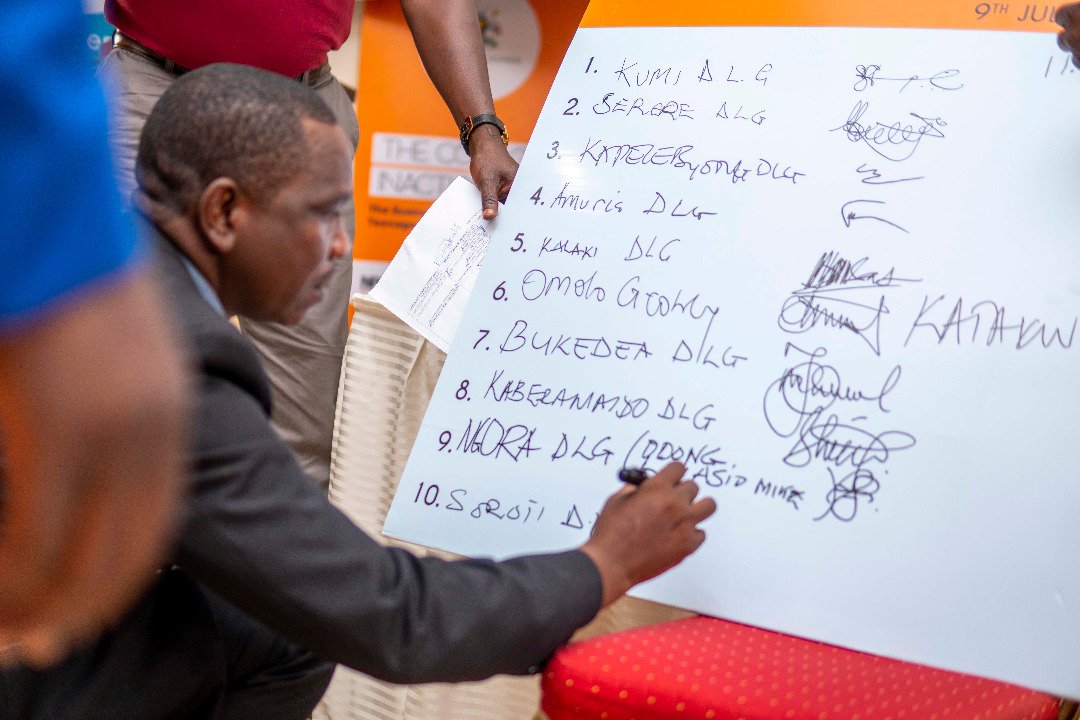 9TH JUL
11.
1. KUMI DLG
2. SERERE DLG
3. KAPELEBYONG DLG
4. Amuria DLG
5. KALAKI DLG
6. Omolo
KATAKWI
7. BUKEDEA DLG
8. KABERAMAIDO DLG
9. NGORA DLG (ODONG
10. SOROTI D.
THE CO
INACT